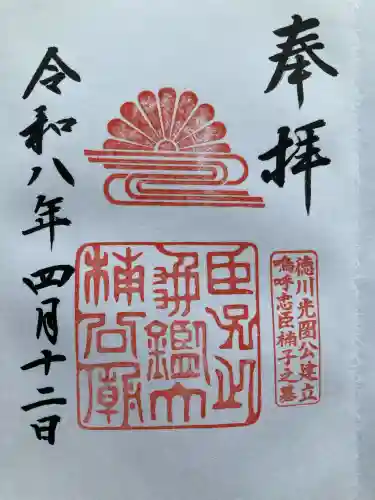 奉拝
徳川光圀公建立
嗚呼忠臣楠子之墓
臣子之
鑑大
楠公廟
令和八年四月十二日